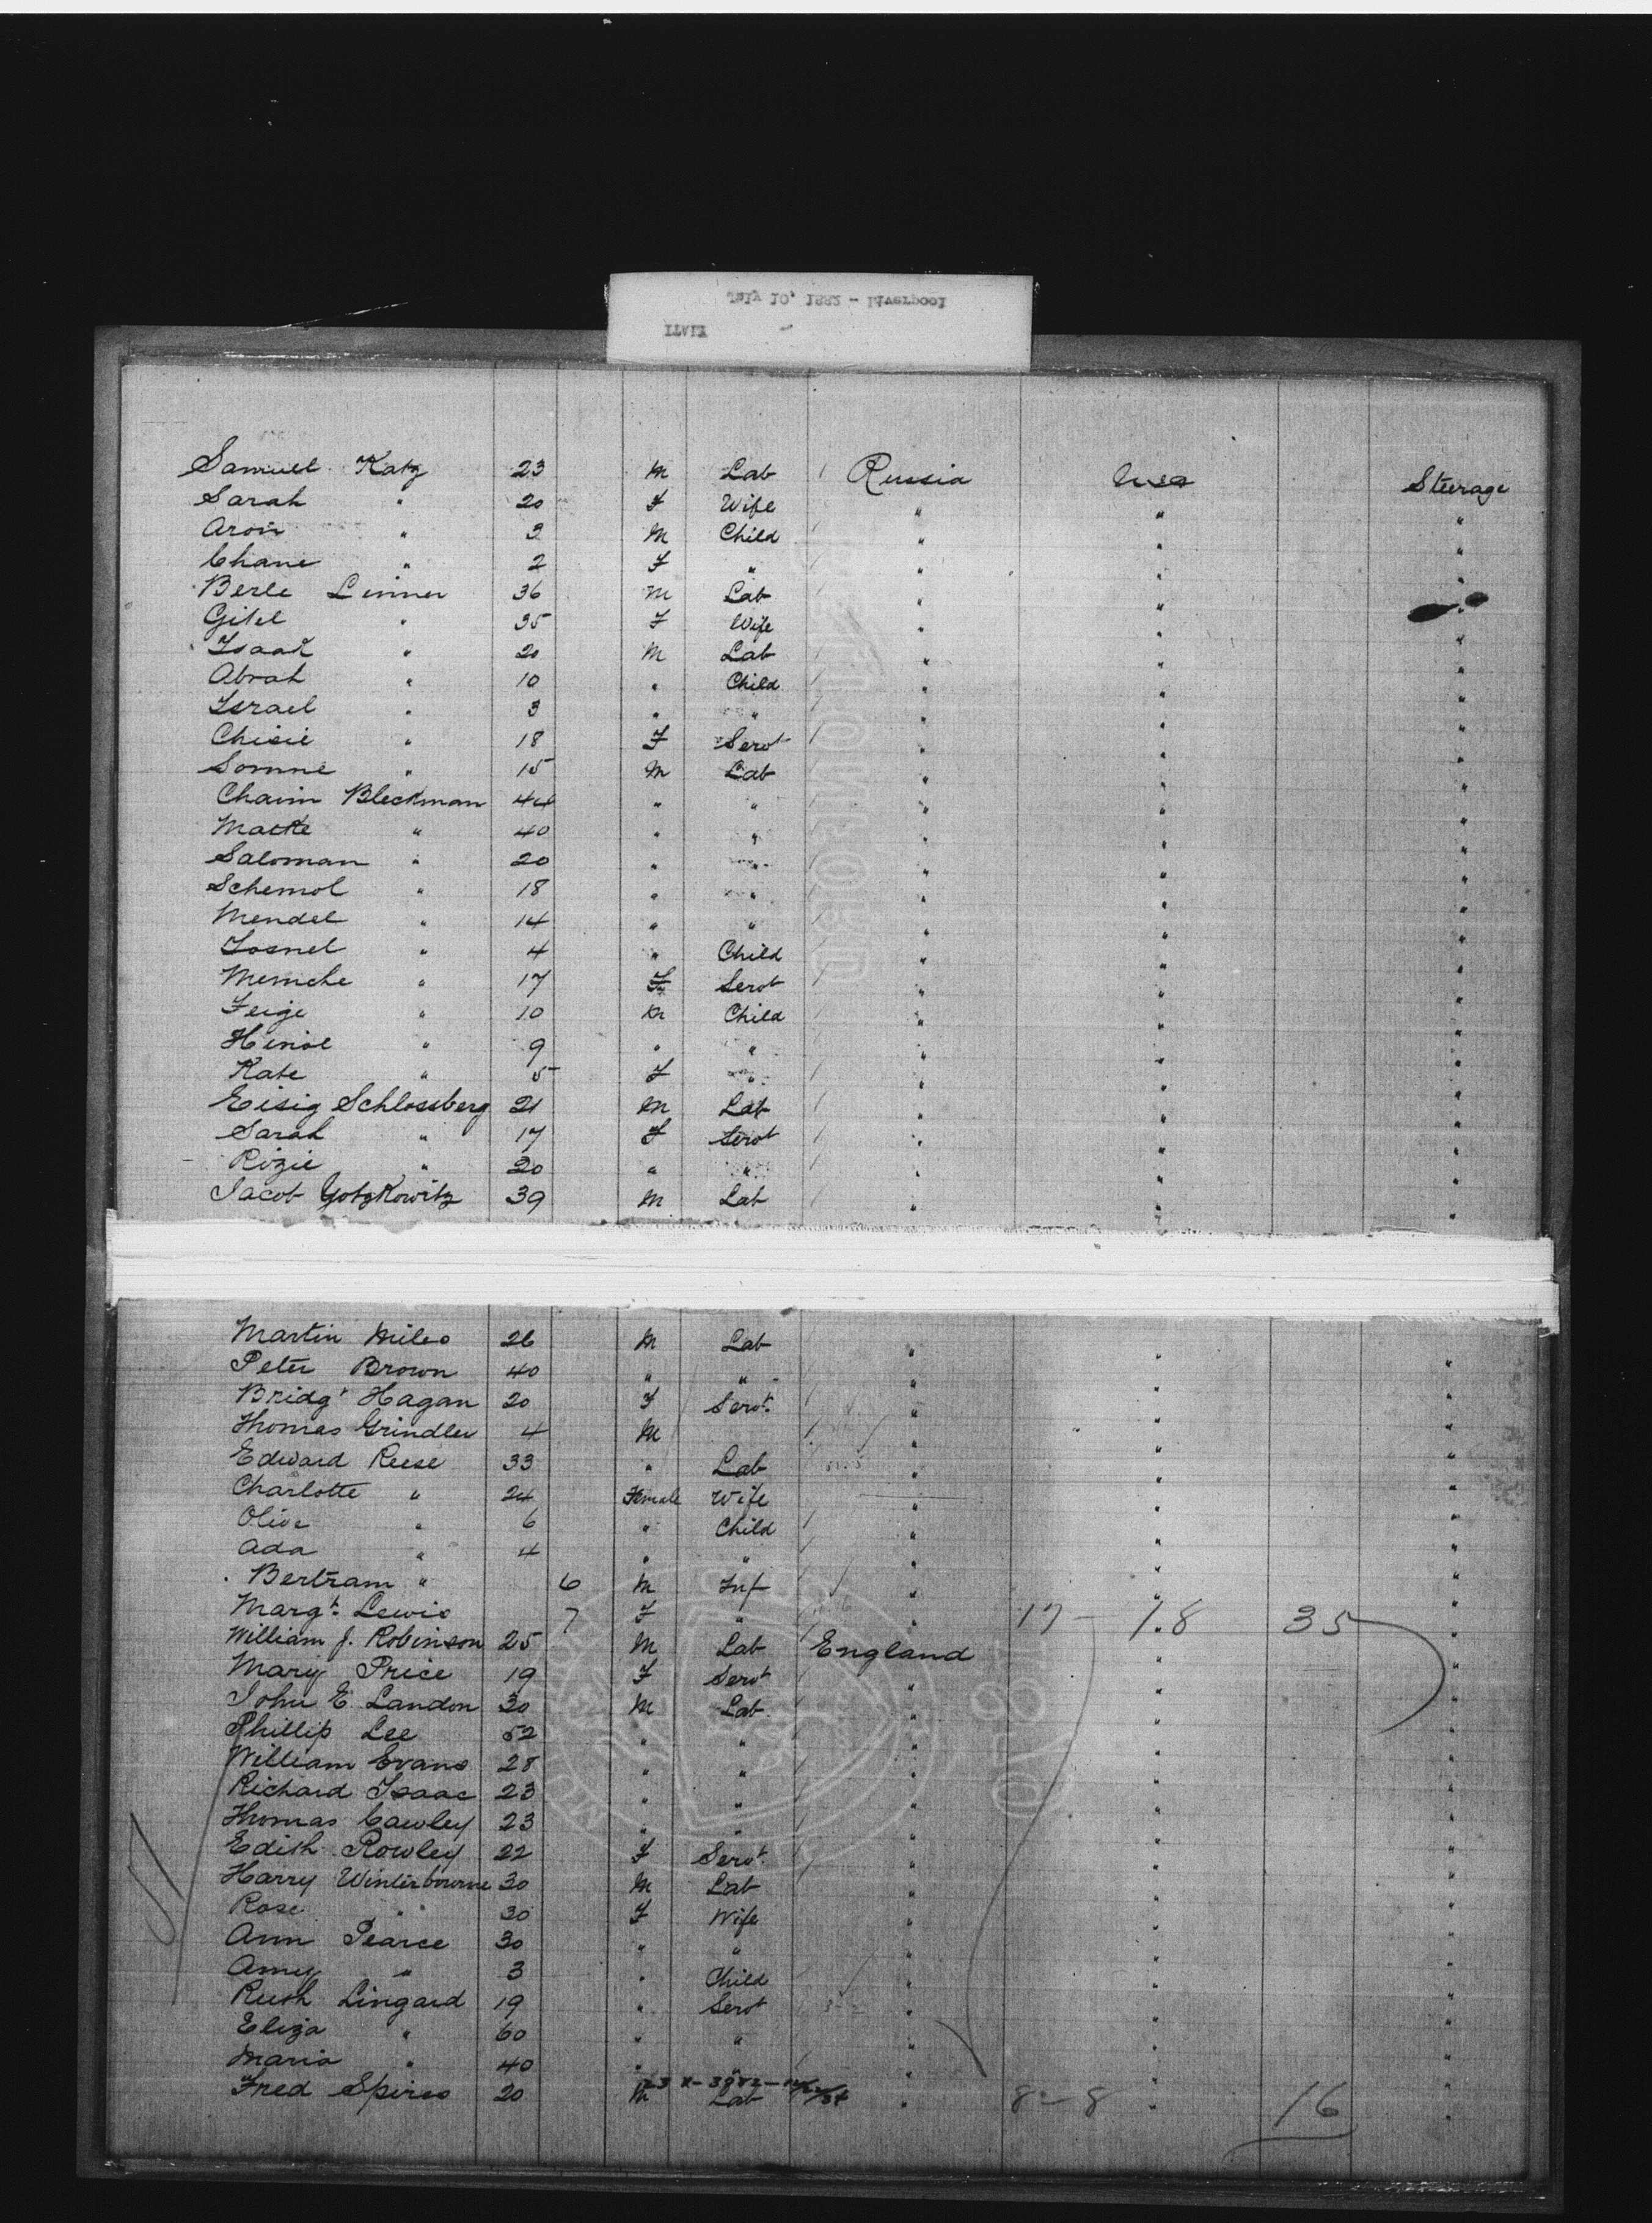 July 10, 1882 - Liverpool
Samuel Katz 23 M Lab Russia Usa Steerage
Sarah " 20 F Wife " " "
Aron " 3 M Child " " "
Chane " 2 F " " " "
Berle Linner 36 M Lab " " "
Gitel " 35 F Wife " " "
Isaak " 20 M Lab " " "
Abrah " 10 " Child " " "
Israel " 3 " " " " "
Chisie " 18 F Servt " " "
Somne " 15 M Lab " " "
Chaim Bleckman 44 " " " " "
Matke " 40 " " " " "
Saloman " 20 " " " " "
Schemol " 18 " " " " "
Mendel " 14 " " " " "
Josnel " 4 " Child " " "
Memche " 17 F Servt " " "
Feige " 10 M Child " " "
" 9 " " " " "
Kate " 5 F " " " "
Eisig Schlossberg 21 M Lab " " "
Sarah " 17 F Servt " " "
Rizie " 20 " " " " "
Jacob Gotzkowitz 39 M Lab " " "
Martin Miles 26 M Lab " " "
Peter Brown 40 " " " " "
Bridgt Hagan 20 F Servt. " " "
Thomas Grindler 4 M " " "
Edward Reese 33 " Lab " " "
Charlotte " 24 Female Wife " "
Olive " 6 " Child " " "
Ada " 4 " " " " "
Bertram " 6 M Inf " " "
Margt. Lewis 7 F " " 17 - 18 35 "
William J. Robinson 25 M Lab England " "
Mary Price 19 F Servt " " "
John E. Landon 30 M Lab " " "
Phillip Lee 52 " " " " "
William Evans 28 " " " " "
Richard Isaac 23 " " " " "
Thomas Cawley 23 " " " " "
Edith Rowley 22 F Servt. " " "
Harry Winterbourne 30 M Lab " " "
Rose " 30 F Wife " " "
Ann Pearce 30 " " " " "
Amey " 3 " Child " " "
Ruth Lingard 19 " Servt " " "
Eliza " 60 " " " " "
Maria " 40 " " " " "
Fred Spires 20 M Lab " 8 - 8 " 16 "